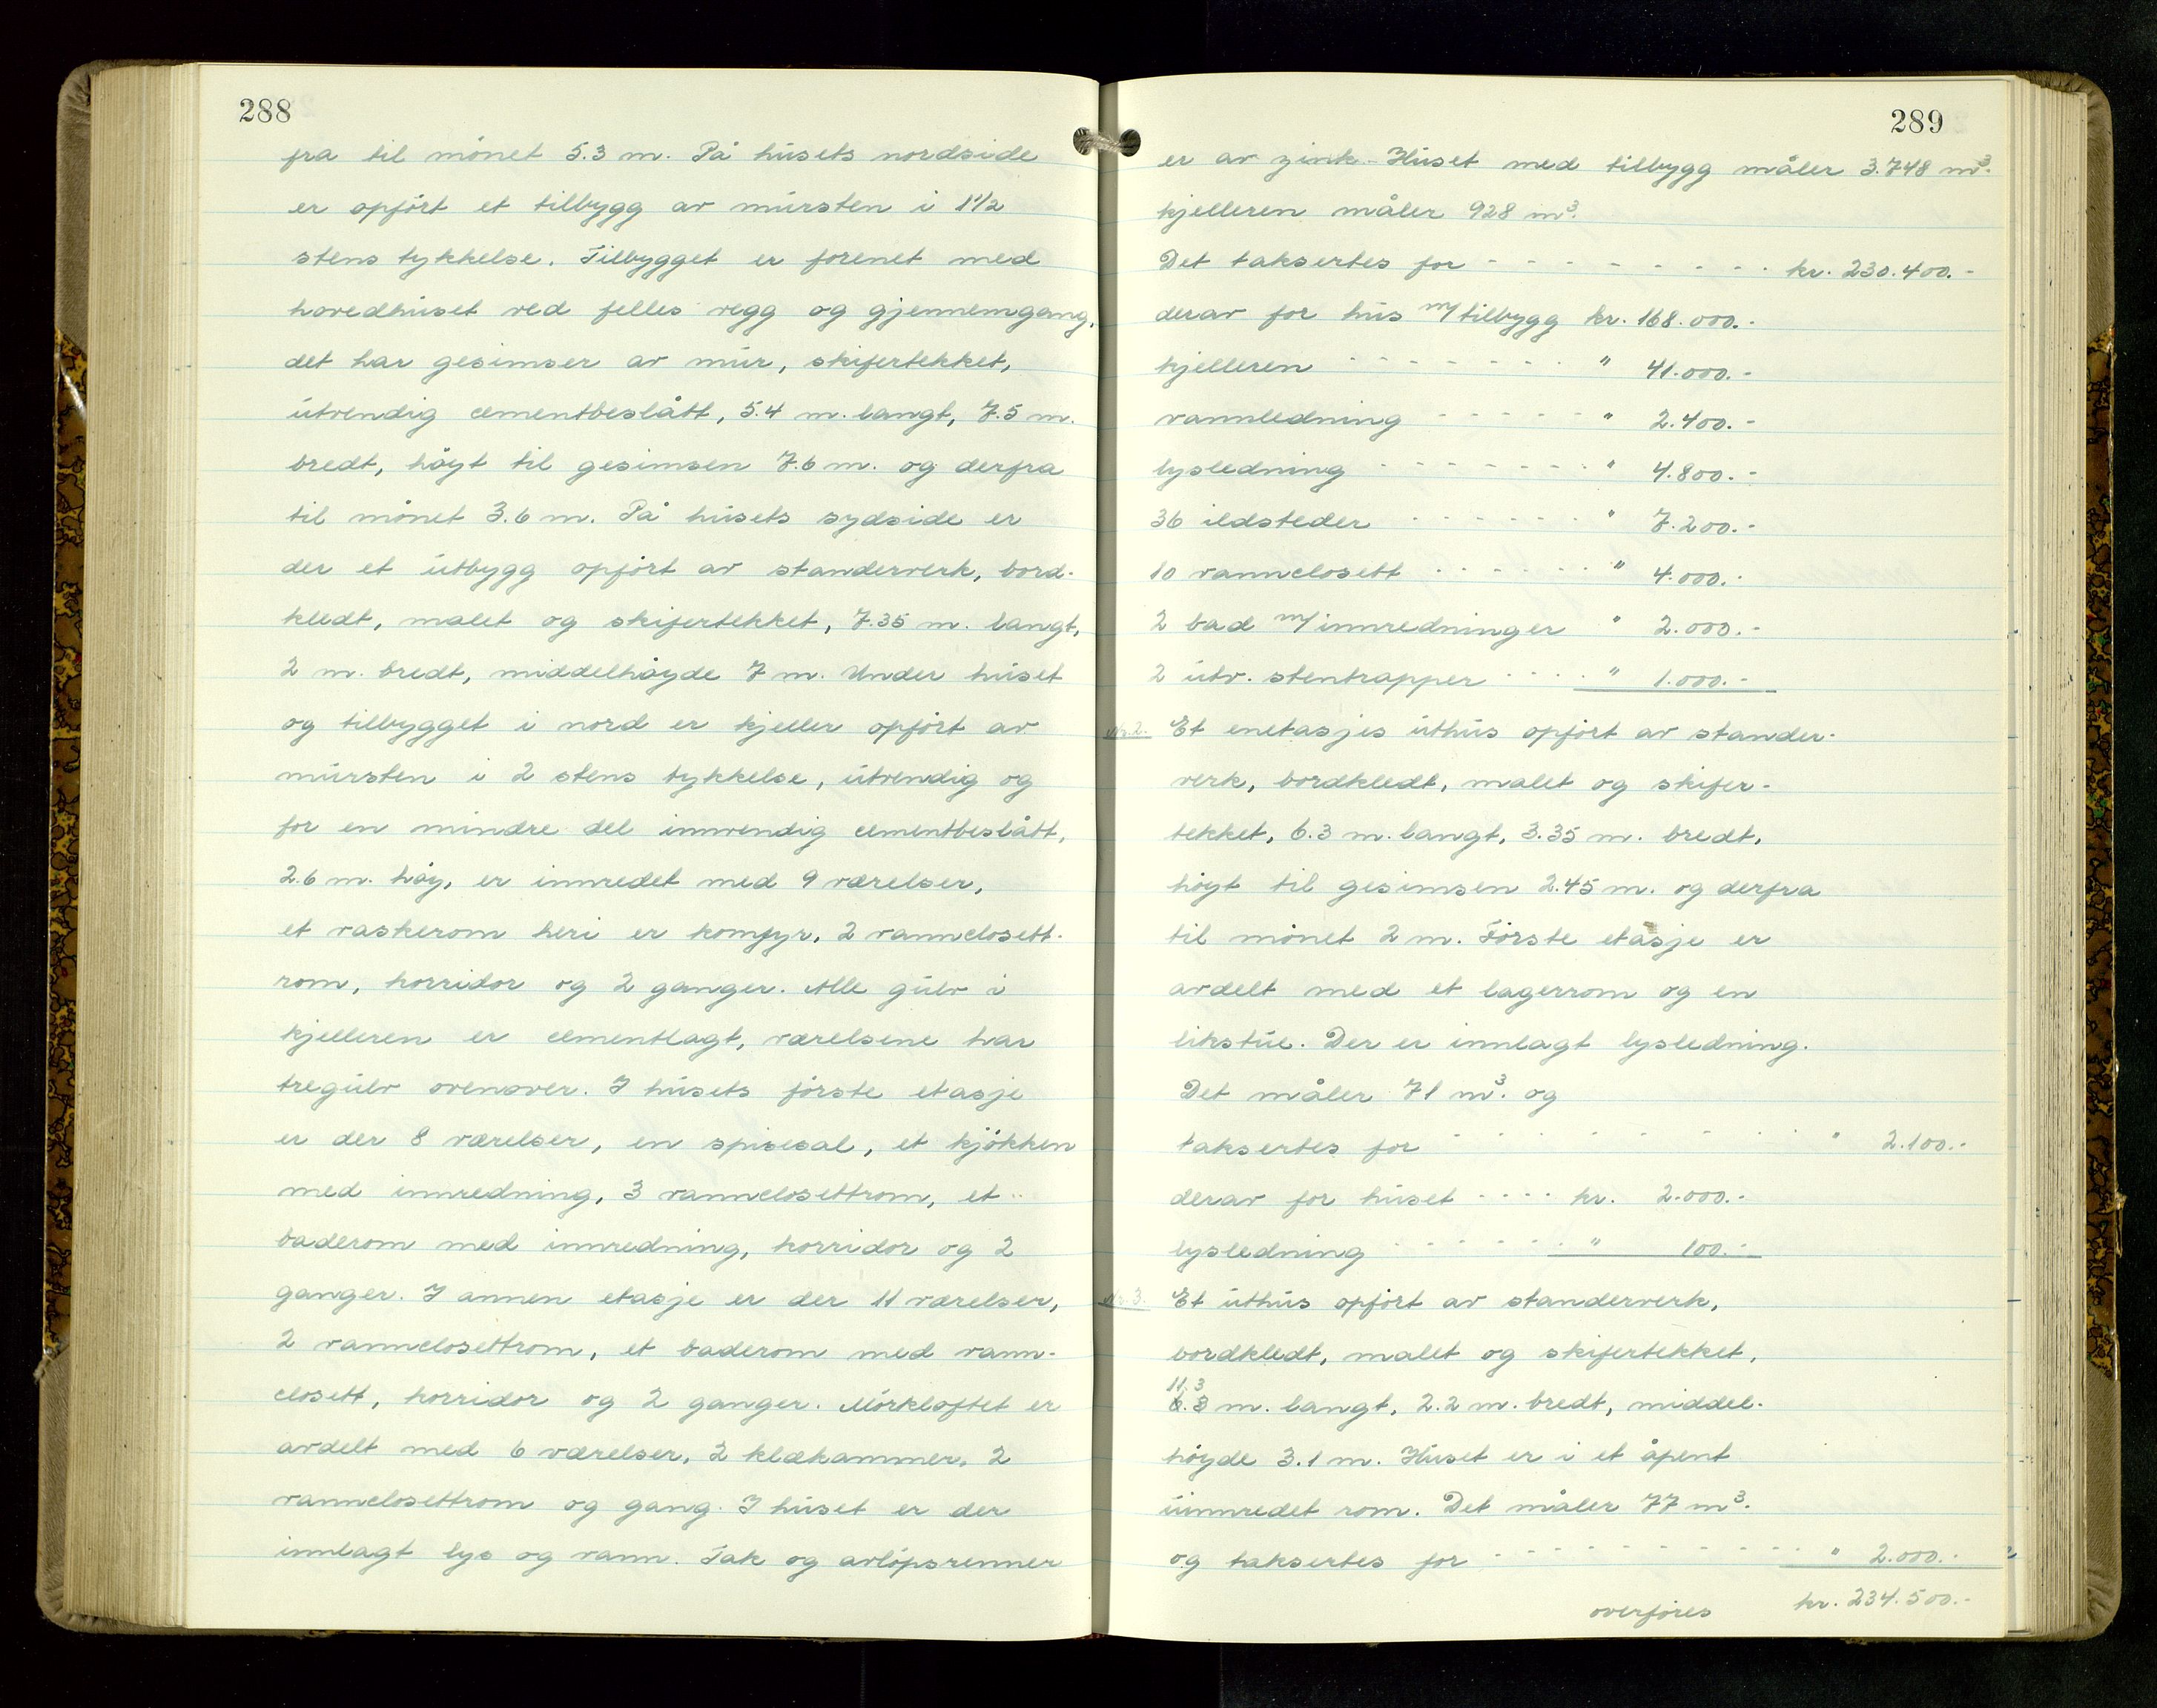 288
fra til mönet 5.3 m. På husets nordside
er opfört et tilbygg av mursten i 1 1/2
stens tykkelse. Tilbygget er forenet med
hovedhuset ved felles vegg og gjennemgang,
det har gesimser av mur, skifertekket,
utvendig cementbeslått, 5.4 m. langt, 7.5 m.
bredt, höyt til gesimsen 7.6 m. og derfra
til mönet 3.6 m. På husets sydside er
der et utbygg opfört av standerverk, bord-
kledt, malet og skifertekket, 7.35 m. langt,
2 m. bredt, middelhöyde 7 m. Under huset
og tilbygget i nord er kjeller opfört av
mursten i 2 stens tykkelse, utvendig og
for en mindre del innvendig cementbeslått,
2.6 m. höy, er innredet med 9 værelser,
et vaskerom heri er komfyr, 2 vannclosett-
rom, korridor og 2 ganger. Alle gulv i
kjelleren er cementlagt, værelsene har
tregulv ovenover. I husets förste etasje
er der 8 værelser, en spisesal, et kjökken
med innredning, 3 vannclosettrom, et
baderom med innredning, korridor og 2
ganger. I annen etasje er der 11 værelser,
2 vannclosettrom, et baderom med vann-
closett, korridor og 2 ganger. Mörkloftet er
avdelt med 6 værelser, 2 klækammer, 2
vannclosettrom og gang. I huset er der
innlagt lys og vann. Tak og avlöpsrenner
289
er av zink. - Huset med tilbygg måler 3.748 m³.
kjelleren måler 928 m³.
Det taksertes for - - - - - - - - - kr. 230.400.-
derav for hus m/tilbygg kr. 168.000.-
kjelleren - - - - - - - " 41.000.-
vannledning - - - - - - " 2.400.-
lysledning - - - - - - - " 4.800.-
36 ildsteder - - - - - - " 7.200.-
10 vannclosett - - - - - - " 4.000.-
2 bad m/innredninger " 2.000.-
2 utv. stentrapper - - - - " 1.000.-
Nr. 2. Et enetasjes uthus opfört av stander-
verk, bordkledt, malet og skifer-
tekket, 6.3 m. langt, 3.35 m. bredt,
höyt til gesimsen 2.45 m. og derfra
til mönet 2 m. Förste etasje er
avdelt med et lagerrom og en
likstue. Der er innlagt lysledning.
Det måler 71 m³. og
taksertes for - - - - - - - - - " 2.100.-
derav for huset - - - - kr. 2.000.-
lysledning - - - - - - " 100.-
Nr. 3. Et uthus opfört av standerverk,
bordkledt, malet og skifertekket,
11.3
6.3 m. langt, 2.2 m. bredt, middel-
höyde 3.1 m. Huset er i et åpent
uinnredet rom. Det måler 77 m³.
og taksertes for - - - - - - - - - - - " 2.000.-
overföres kr. 234.500.-